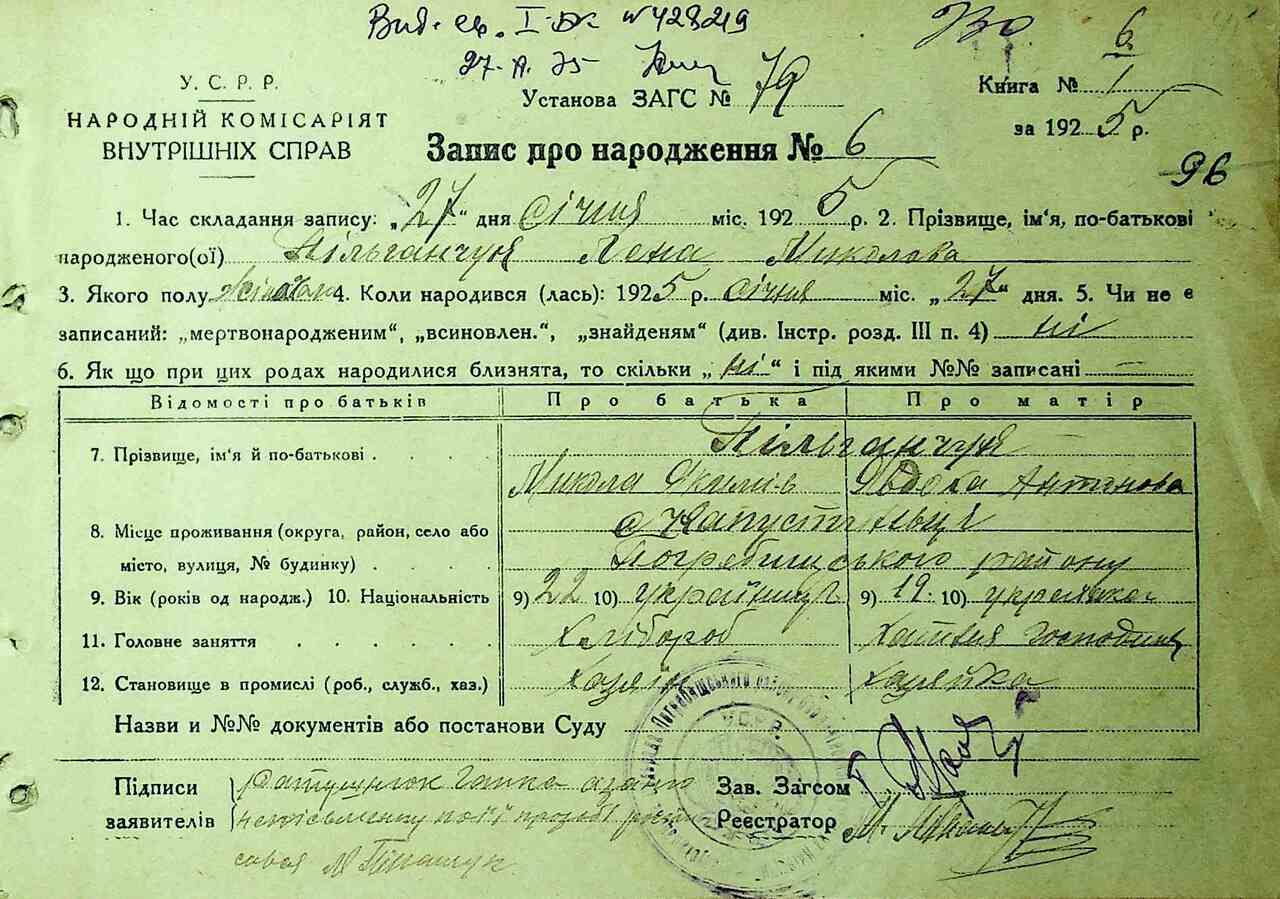 Вид. св. I-БК № 428219
27. II. 75
У. С. Р. Р.
НАРОДНІЙ КОМІСАРІЯТ
ВНУТРІШНІХ СПРАВ
Установа ЗАГС № 79
Книга № 6 1
за 1925 р.
Запис про народження № 6
96
1. Час складання запису: „27“ дня Січня міс. 1925 р. 2. Прізвище, ім‘я, по-батькові
народженого(ої) Пільганчук Лена Миколова
3. Якого полу 4. Коли народився (лась): 1925 р. січня міс. „27“ дня. 5. Чи не є
записаний: „мертвонародженим“, „всиновлен.“, „знайденям“ (див. Інстр. розд. III п. 4) ні
6. Як що при цих родах народилися близнята, то скільки „ні“ і під якими №№ записані —
Відомості про батьків Про батька Про матір
7. Прізвище, ім‘я й по-батькові . . . . Пільганчук
Микола Якимів Явдоха Антонова
8. Місце проживання (округа, район, село або с Капустинці
місто, вулиця, № будинку) . . . . Погребищського району
9. Вік (років од народж.) 10. Національність 9) 22 10) українець 9) 19. 10) українка
11. Головне заняття . . . . . . Хлібороб Хатня Господиня
12. Становище в промислі (роб., служб., хаз.) Хазяїн Хазяйка
Назви и №№ документів або постанови Суду
Підписи Ратушнюк Ганка а за його Зав. Загсом
заявителів неписьменну по її прозбі Реєстратор
М.
У.С.Р.Р.